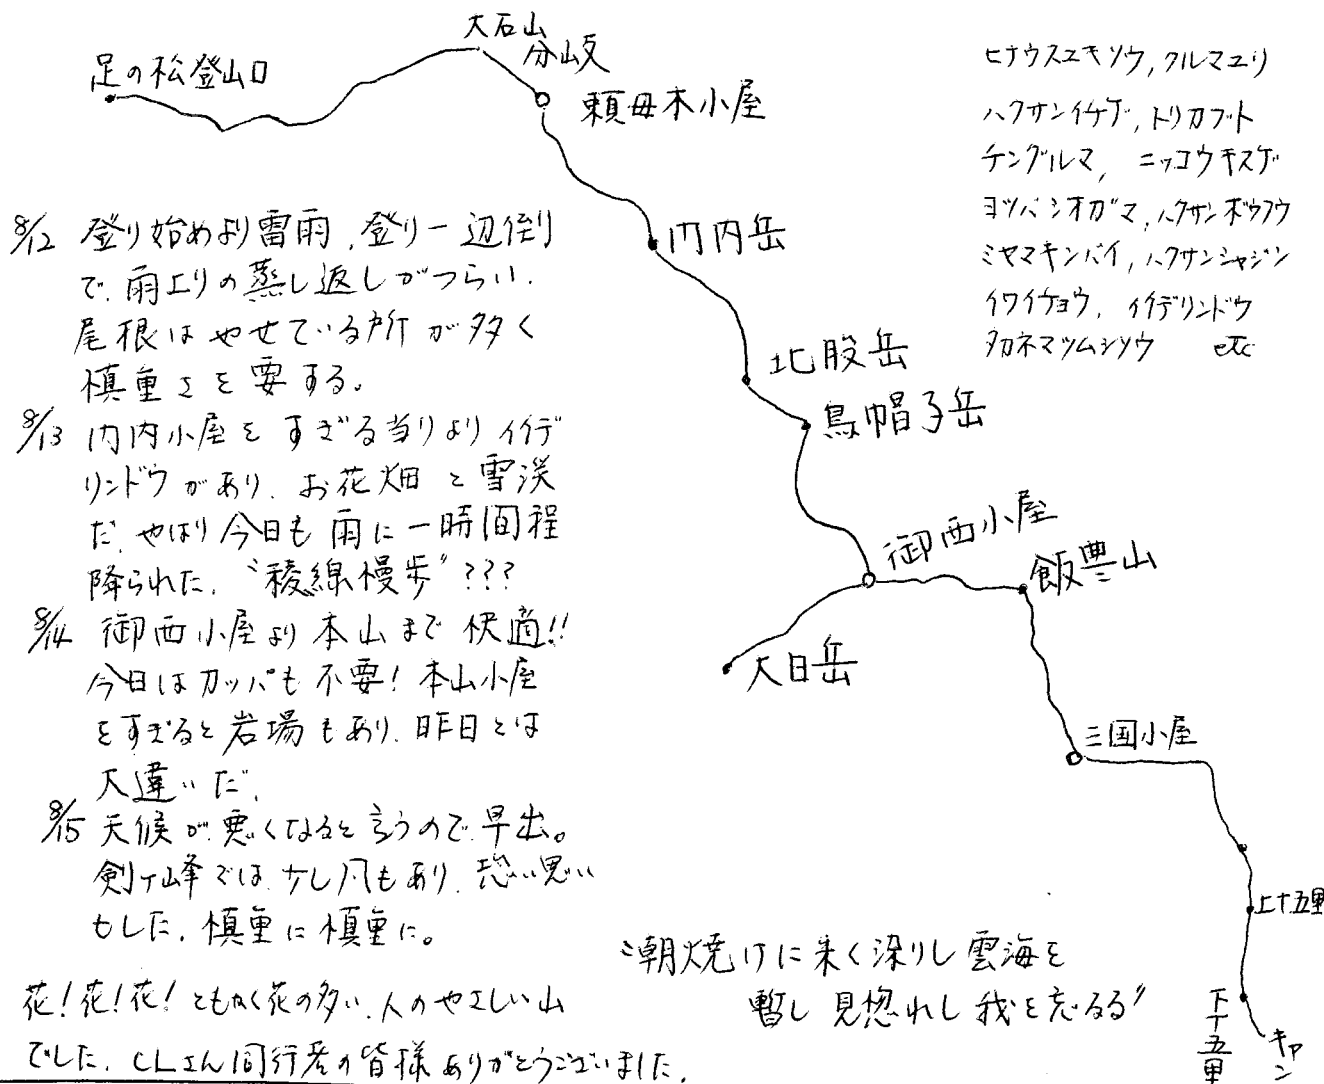 大石山
分岐
足の松登山口
頼母木小屋
門内岳
北股岳
烏帽子岳
御西小屋
飯豊山
大日岳
三国小屋
上十五里
下十五里
キャン
ヒナウスユキソウ, クルマユリ
ハクサンイチゲ, トリカブト
チングルマ, ニッコウキスゲ
ヨツバシオガマ, ハクサンボウフウ
ミヤマキンバイ, ハクサンシャジン
イワイチョウ, イイデリンドウ
タカネマツムシソウ etc
8/12 登り始めより雷雨,登り一辺倒
で、雨上りの蒸し返しがつらい.
尾根はやせている所が多く
慎重さを要する。
8/13 門内小屋をすぎる当りよりイイデ
リンドウがあり、お花畑と雪渓
だ、やはり今日も雨に一時間程
降られた、〝稜線慢歩〟???
8/14 御西小屋より本山まで快適!!
今日はカッパも不要! 本山小屋
をすぎると岩場もあり、昨日とは
大違いだ、
8/15 天候が悪くなると言うので早出。
剣ヶ峰では少し風もあり、恐い思い
もした、慎重に慎重に。
花!花!花! ともかく花の多い、人のやさしい山
でした、CLさん同行者の皆様ありがとうございました、
〝朝焼けに朱く染りし雲海を
暫し見惚れし我を忘るる〟